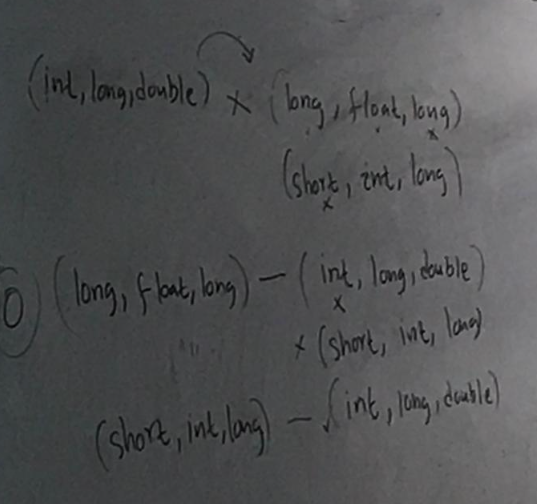 (int, long, double) × (long, float, long)
×
(short, int, long)
×
0 (long, float, long) — (int, long, double)
×
× (short, int, long)
(short, int, long) — √(int, long, double)